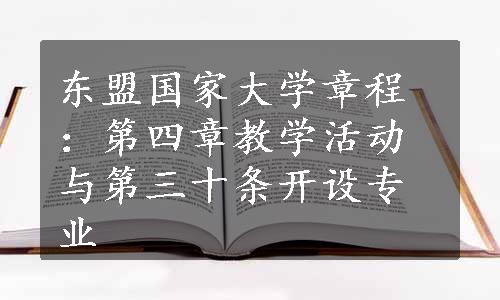 东盟国家大学章程
：第四章教学活动
与第三十条开设专
业